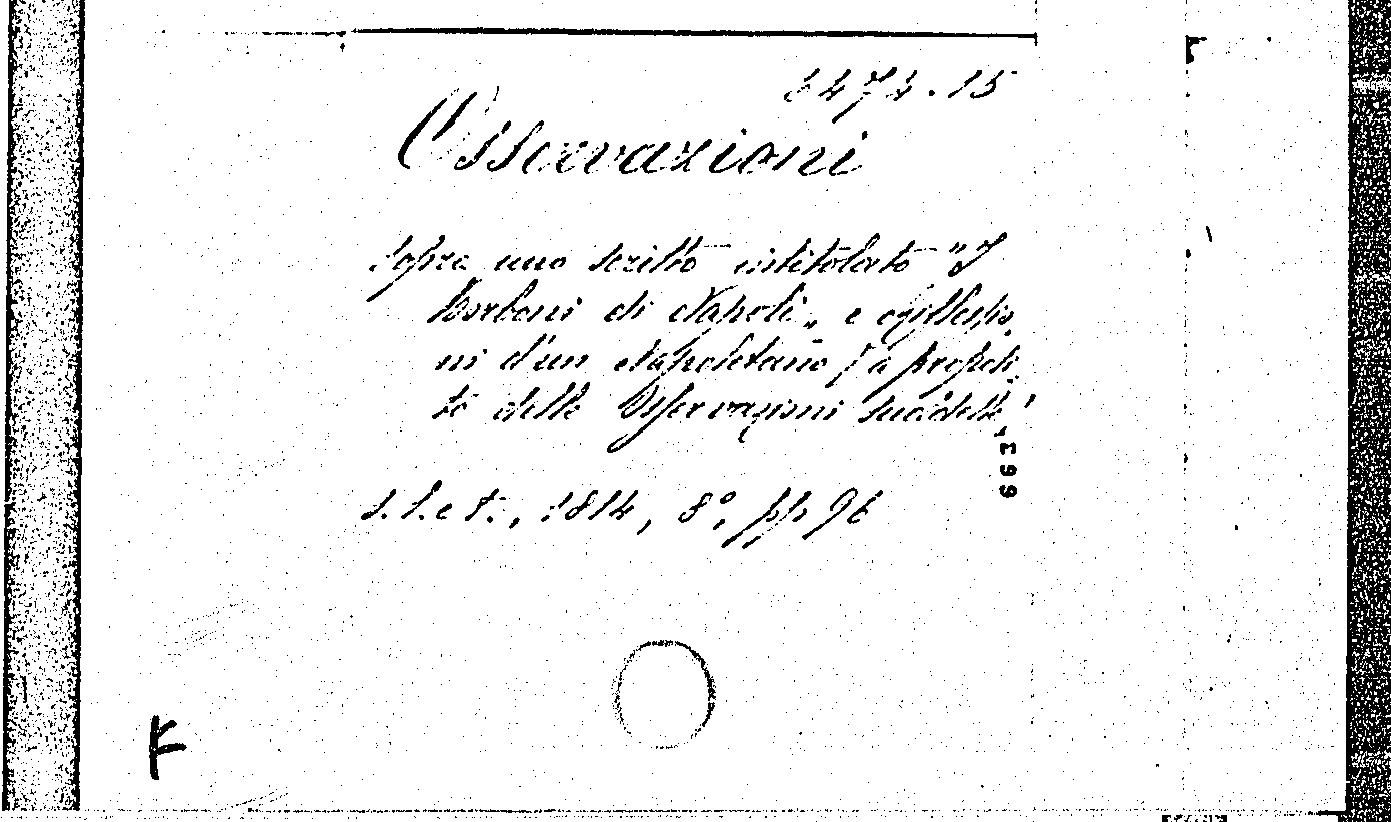 Osservazioni
sopra uno scritto intitolato "I
Borboni di Napoli„ e riflessio
ni d'un Napoletano, a proposi
to delle Osservazioni suddette
s. l. e t., 1814, 8°, pp 96
F